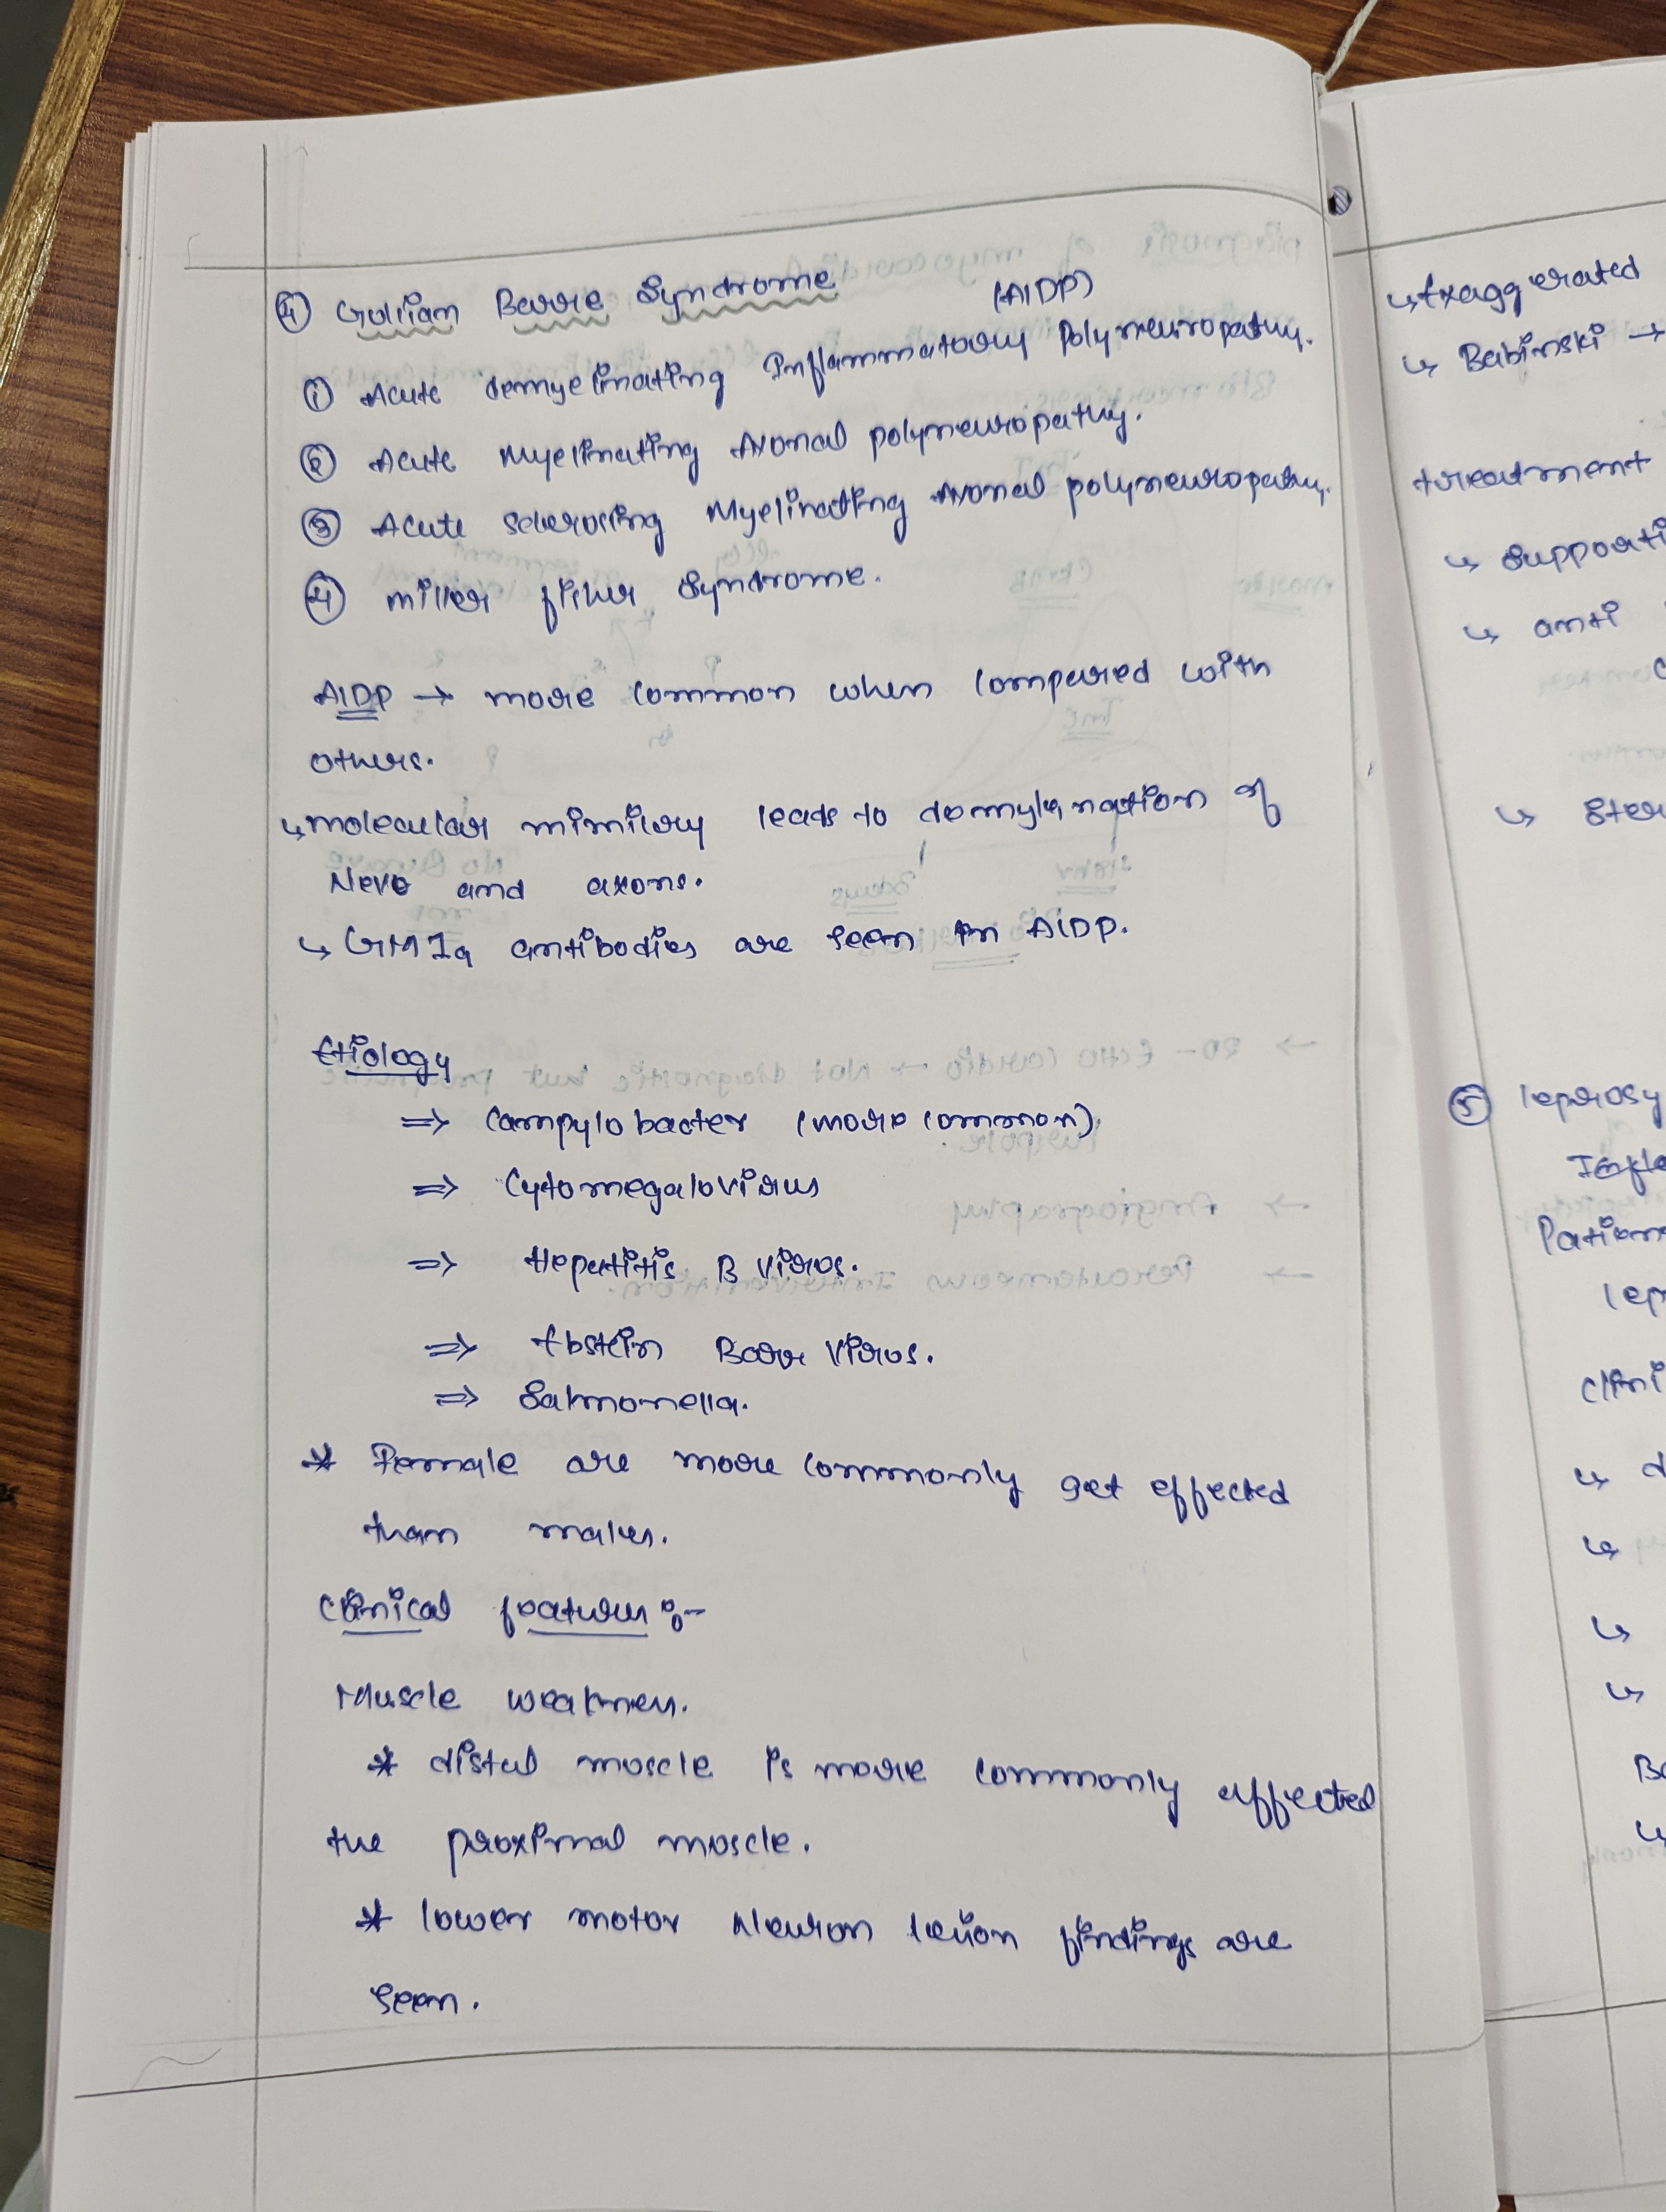 ④ Gullian Barre Syndrome
(AIDP)
① Acute demyelinating Inflammatory Polyneuropathy.
② Acute Myelinating Axonal polyneuropathy.
③ Acute sclerosing Myelinating Axonal polyneuropathy.
④ miller fisher Syndrome.
AIDP → more common when compared with
others.
↳ molecular mimicry leads to demylenation of
Neve and axons.
↳ antibodies are seen in AIDP.
Etiology
⇒ Campylobacter (more common)
⇒ Cytomegalovirus
⇒ Hepatitis B Virus.
⇒ Ebstein Barr Virus.
⇒ Salmonella.
* Female are more commonly get effected
than males.
Clinical features :-
Muscle weakness.
* distal muscle is more commonly effected
the proximal muscle.
* lower motor Neuron lesion findings are
seen.
↳ Exaggerated
↳ Babinski →
treatment
↳ Supporti
↳ anti
↳ Ster
⑤ leprosy
Infla
Patien
lep
Clini
↳ d
↳
↳
↳
B
↳